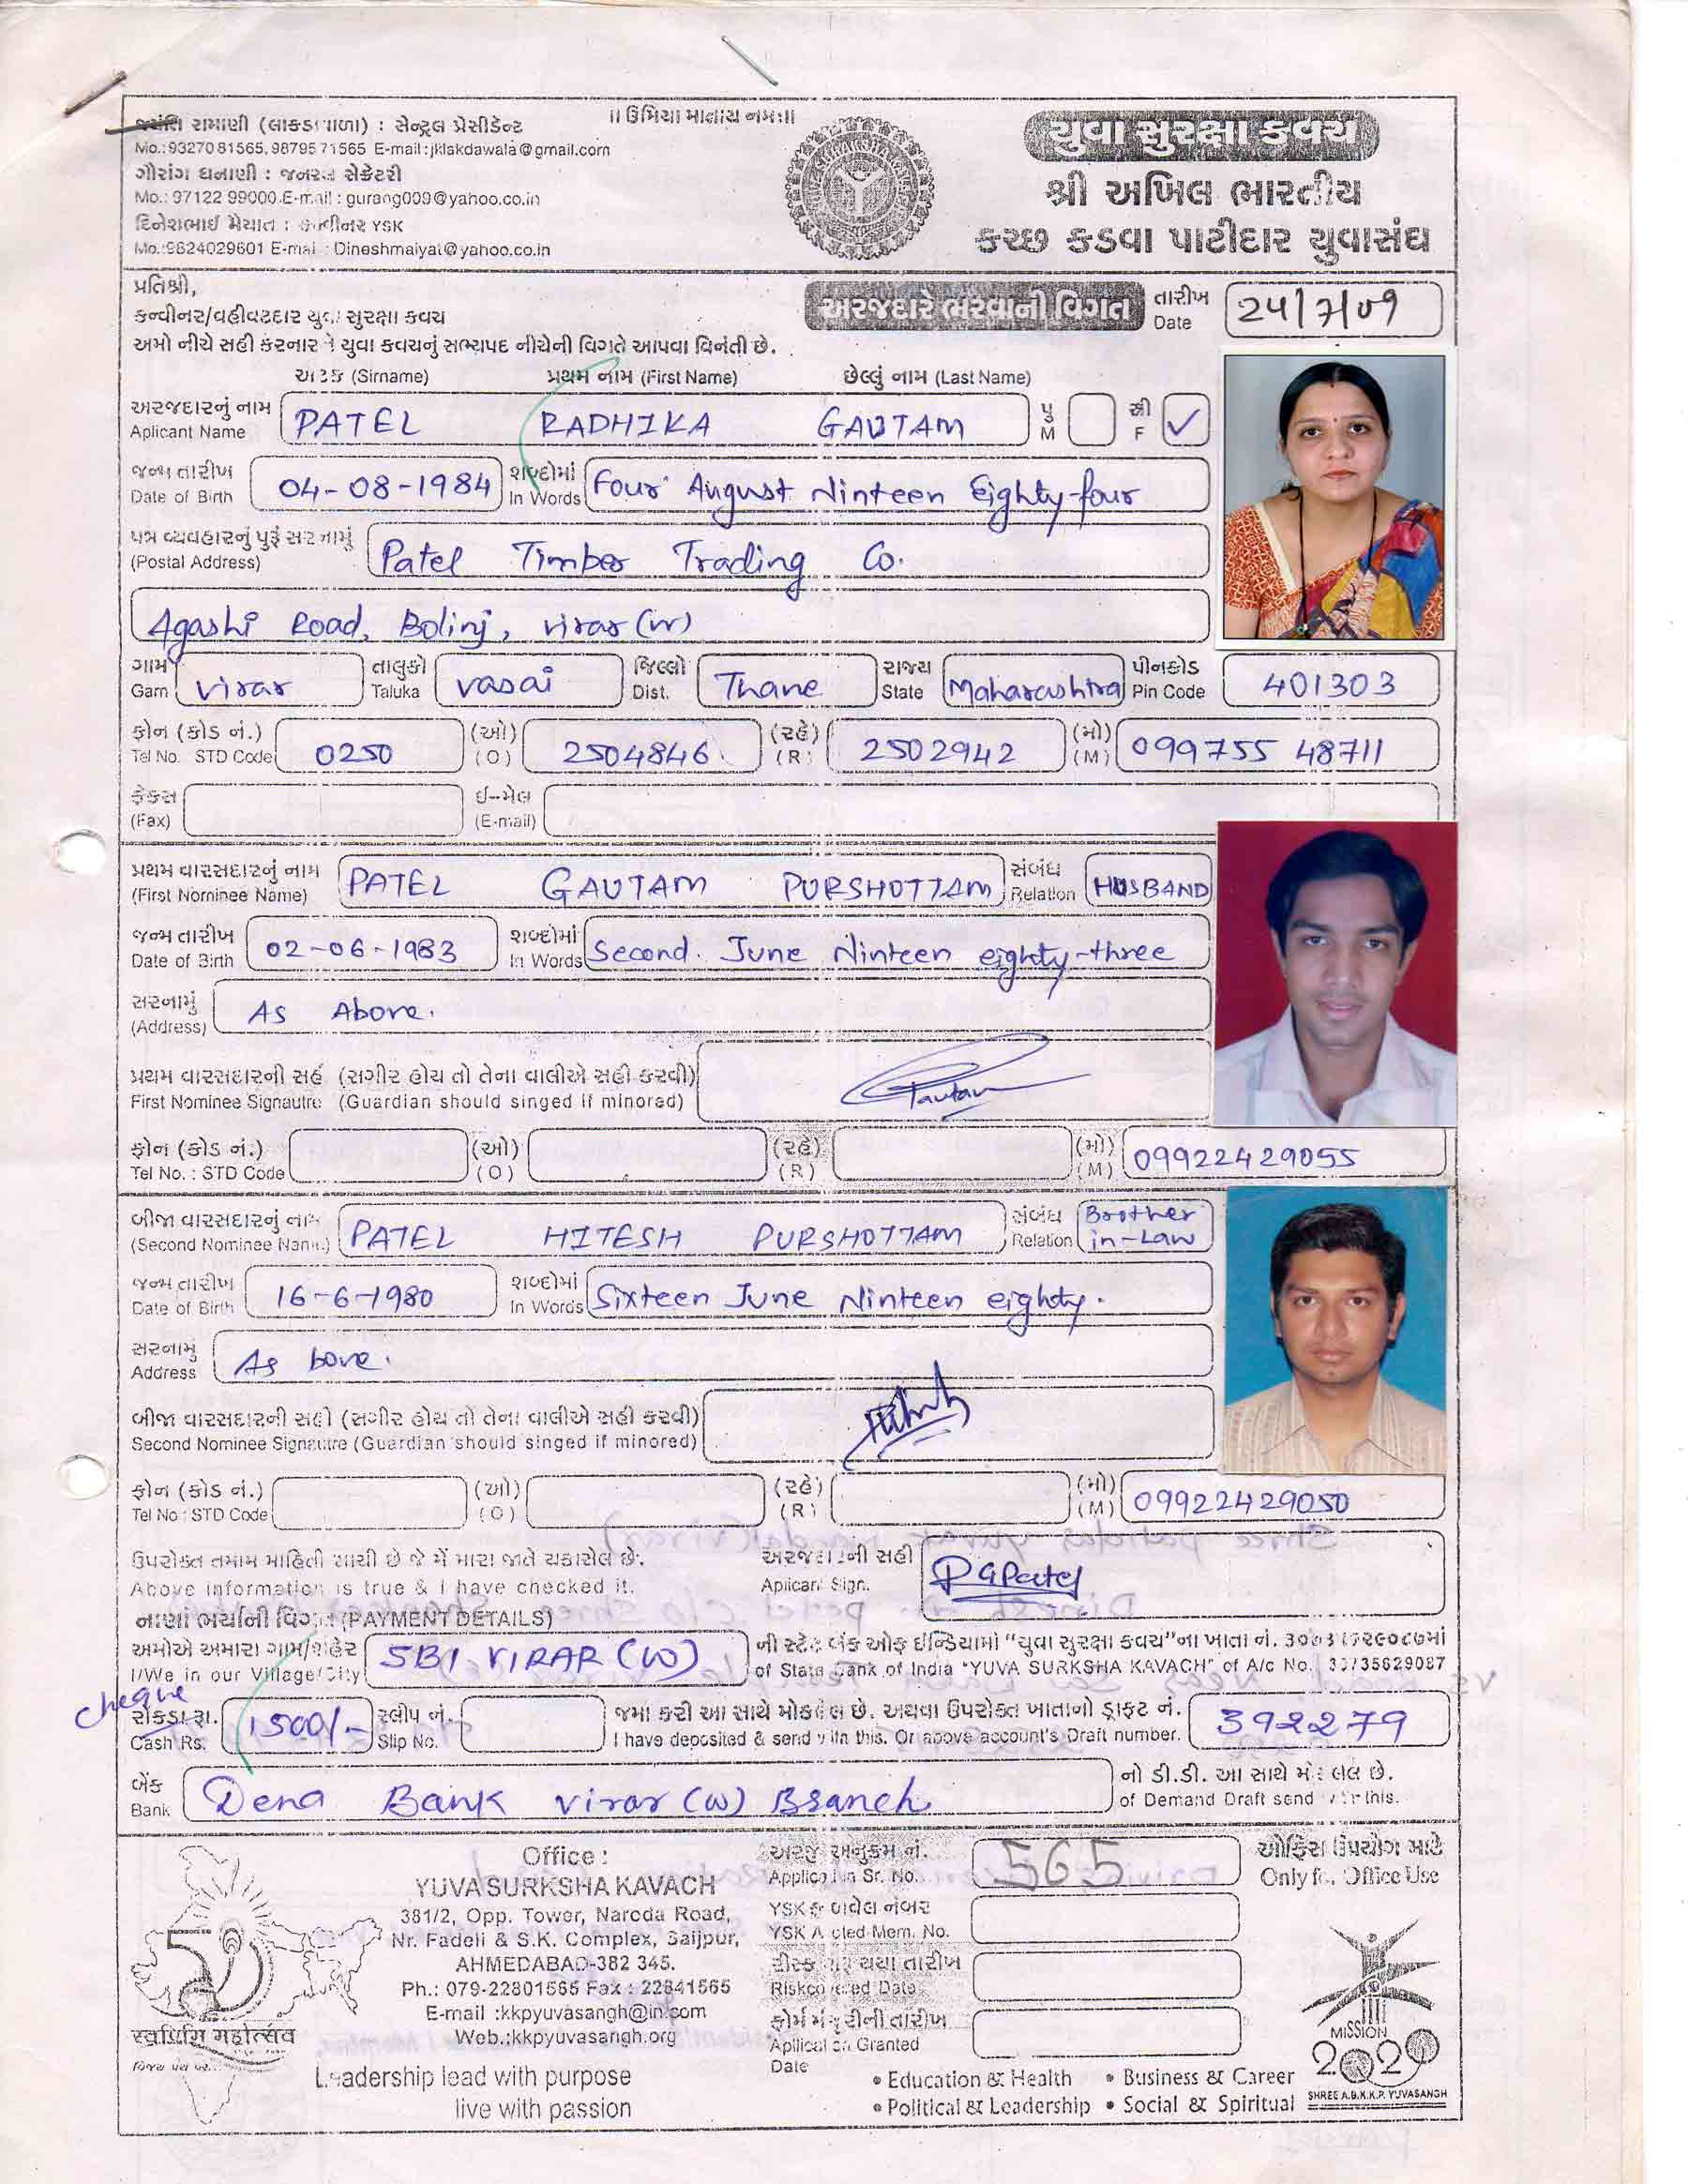 રામાણી (લાકડાવાળા) : સેન્ટ્રલ પ્રેસીડેન્ટ
Mo.:9327081565, 9879571565 E-mail:jklakdawala@gmail.com
ગૌરાંગ ધનાણી : જનરલ સેક્રેટરી
Mo.: 97122 99000 E-mail : gurang009@yahoo.co.in
દિનેશભાઈ મૈયાત : કન્વીનર YSK
Mo.:9824029601 E-mail : Dineshmaiyat@yahoo.co.in
॥ ઉમિયા માતાય નમઃ॥
યુવા સુરક્ષા કવચ
શ્રી અખિલ ભારતીય
કચ્છ કડવા પાટીદાર યુવાસંઘ
પ્રતિશ્રી,
કન્વીનર/વહીવટદાર યુવા સુરક્ષા કવચ
અમો નીચે સહી કરનારને યુવા કવચનું સભ્યપદ નીચેની વિગતે આપવા વિનંતી છે.
અરજદારે ભરવાની વિગત
તારીખ
Date
24/7/09
અટક (Sirname) પ્રથમ નામ (First Name) છેલ્લું નામ (Last Name)
અરજદારનું નામ
Aplicant Name PATEL RADHIKA GAUTAM પુ M સ્ત્રી F ✓
જન્મ તારીખ
Date of Birth 04-08-1984 શબ્દોમાં In Words Four August Ninteen Eighty-four
પત્ર વ્યવહારનું પુરૂં સરનામું
(Postal Address) Patel Timber Trading Co.
Agashi Road, Bolinj, virar (w)
ગામ Gam virar તાલુકો Taluka vasai જિલ્લો Dist. Thane રાજ્ય State Maharashtra પીનકોડ Pin Code 401303
ફોન (કોડ નં.)
Tel No. STD Code 0250 (ઓ) (O) 2504846 (રહે) (R) 2502942 (મો) (M) 099755 48711
ફેક્સ (Fax) ઈ-મેલ (E-mail)
પ્રથમ વારસદારનું નામ
(First Nominee Name) PATEL GAUTAM PURSHOTTAM સંબંધ Relation HUSBAND
જન્મ તારીખ
Date of Birth 02-06-1983 શબ્દોમાં In Words Second June Ninteen eighty-three
સરનામું
(Address) As Above.
પ્રથમ વારસદારની સહી (સગીર હોય તો તેના વાલીએ સહી કરવી)
First Nominee Signautre (Guardian should singed if minored) Gautam
ફોન (કોડ નં.)
Tel No. : STD Code (ઓ) (O) (રહે) (R) (મો) (M) 09922429055
બીજા વારસદારનું નામ
(Second Nominee Name) PATEL HITESH PURSHOTTAM સંબંધ Relation Brother in-Law
જન્મ તારીખ
Date of Birth 16-6-1980 શબ્દોમાં In Words Sixteen June Ninteen eighty.
સરનામું
Address As bove.
બીજા વારસદારની સહી (સગીર હોય તો તેના વાલીએ સહી કરવી)
Second Nominee Signautre (Guardian should singed if minored)
ફોન (કોડ નં.)
Tel No : STD Code (ઓ) (O) (રહે) (R) (મો) (M) 09922429050
ઉપરોક્ત તમામ માહિતી સાચી છે જે મેં મારા જાતે ચકાસેલ છે.
Above information is true & I have checked it.
અરજદારની સહી
Aplicant Sign. RGPatel
નાણાં ભર્યાની વિગત (PAYMENT DETAILS)
અમોએ અમારા ગામ/શહેર
I/We in our Village/City SBI VIRAR (W)
ની સ્ટેટ બેંક ઓફ ઈન્ડિયામાં "યુવા સુરક્ષા કવચ"ના ખાતા નં.
of State Bank of India "YUVA SURKSHA KAVACH" of A/c No. 30735629087
cheque
રોકડા રૂા.
Cash Rs. 1500/- સ્લીપ નં. Slip No.
જમા કરી આ સાથે મોકલેલ છે. અથવા ઉપરોક્ત ખાતાનો ડ્રાફ્ટ નં.
I have deposited & send with this. Or above account's Draft number. 392279
બેંક
Bank Dena Bank virar (w) Branch
નો ડી.ડી. આ સાથે મોકલેલ છે.
of Demand Draft send with this.
સ્વર્ણિમ મહોત્સવ
Office :
YUVA SURKSHA KAVACH
381/2, Opp. Tower, Naroda Road,
Nr. Fadeli & S.K. Complex, Saijpur,
AHMEDABAD-382 345.
Ph.: 079-22801565 Fax : 22841565
E-mail :kkpyuvasangh@in.com
Web.:kkpyuvasangh.org
Leadership lead with purpose
live with passion
અરજી અનુક્રમ નં.
Application Sr. No. 565
ઓફિસ ઉપયોગ માટે
Only for Office Use
YSK
Mem. No.
Date
Aplication Granted
Date
• Education & Health • Business & Career
• Political & Leadership • Social & Spiritual
MISSION
2020
SHREE A.B.K.K.P. YUVASANGH